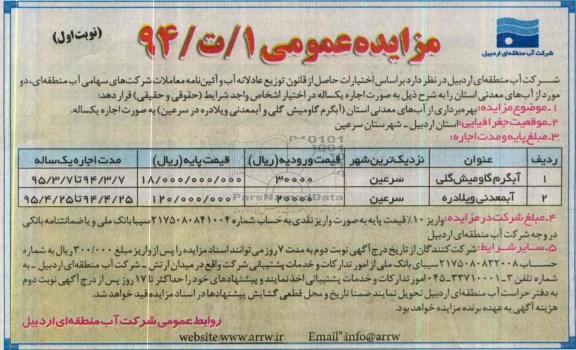 شرکت آب منطقه‌ای اردبیل
مزایده عمومی ۱/ت/۹۴
(نوبت اول)
شرکت آب منطقه‌ای اردبیل در نظر دارد براساس اختیارات حاصل از قانون توزیع عادلانه آب و آئین‌نامه معاملات شرکت‌های سهامی آب منطقه‌ای، دو
مورد از آب‌های معدنی استان را به شرح ذیل به صورت اجاره یکساله در اختیار اشخاص واجد شرایط (حقوقی و حقیقی) قرار دهد:
۱-موضوع مزایده: بهره‌برداری از آب‌های معدنی استان (آبگرم گاومیش گلی و آبمعدنی ویلادره در سرعین) به صورت اجاره یکساله.
۲-موقعیت جغرافیایی: استان اردبیل - شهرستان سرعین
۳-مبلغ پایه و مدت اجاره:
ردیف عنوان نزدیک‌ترین شهر قیمت ورودیه (ریال) قیمت پایه (ریال) مدت اجاره یک‌ساله
۱ آبگرم گاومیش گلی سرعین ۳۰۰۰۰ ۱۸/۰۰۰/۰۰۰/۰۰۰ ۹۴/۳/۷ تا ۹۵/۳/۷
۲ آبمعدنی ویلادره سرعین ۲۰۰۰۰ ۱۲۰/۰۰۰/۰۰۰ ۹۴/۴/۲۵ تا ۹۵/۴/۲۵
۴-مبلغ شرکت در مزایده: واریز ۱۰٪ قیمت پایه به صورت واریز نقدی به حساب شماره ۲۱۷۵۰۸۰۸۴۱۰۰۴ سیبا بانک ملی و یا ضمانتنامه بانکی
در وجه شرکت آب منطقه‌ای اردبیل
۵-سایر شرایط: شرکت کنندگان از تاریخ درج آگهی نوبت دوم به مدت ۷ روز می‌توانند اسناد مزایده را پس از واریز مبلغ ۳۰۰/۰۰۰ ریال به شماره
حساب ۲۱۷۵۰۸۰۸۳۲۰۰۸ سیبای بانک ملی از امور تدارکات و خدمات پشتیبانی شرکت واقع در میدان ارتش - شرکت آب منطقه‌ای اردبیل - به
شماره تلفن ۳-۳۳۷۱۰۰۰۱-۰۴۵ امور تدارکات و خدمات پشتیبانی اخذ نمایند و پیشنهادهای خود را حداکثر تا ۱۷ روز پس از درج آگهی نوبت دوم
به دفتر حراست آب منطقه‌ای اردبیل تحویل نمایند ضمنا تاریخ و محل قطعی گشایش پیشنهادها در اسناد مزایده قید خواهد شد.
هزینه آگهی به عهده برنده مزایده خواهد بود.
روابط عمومی شرکت آب منطقه‌ای اردبیل
website:www.arrw.ir Email":info@arrw